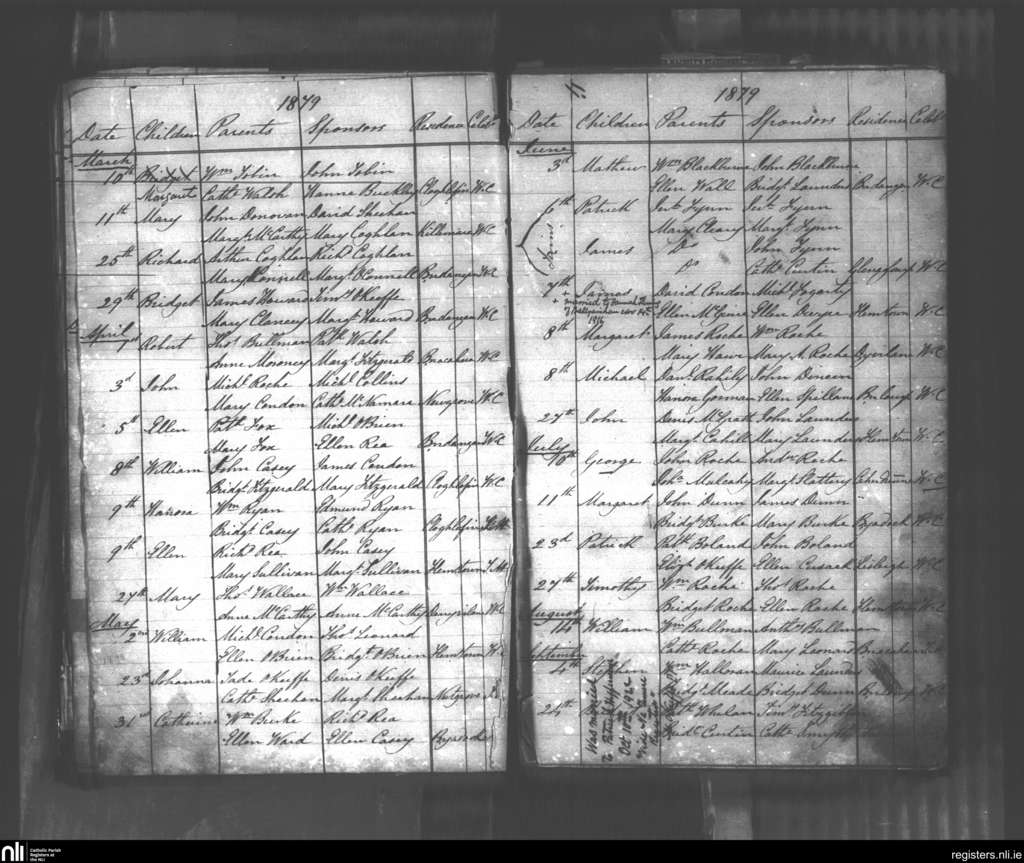 1879
Date Children Parents Sponsors Residence Celebt
March
10th Bridget Wm Tobin John Tobin
Margaret Cathe Walsh Hanne Buckley Coghlefin W.C
11th Mary John Donovan David Sheehan
Margt McCarthy Mary Coghlan Killeenure W.C
25th Richard Arthur Coghlan Richd Coghlan
Mary Connell Margt O'Connell Bndangan W.C
29th Bridget James Howard Timy O'Keeffe
Mary Clancey Margt Howard Bndangan W.C
April
1st Robert Thos Bullman Patk Walsh
Anne Moroney Margt Fitzgerald W.C
3d John Michl Roche Michl Collins
Mary Condon Cathe McNamara Newgrove W.C
5th Ellen Patk Fox Michl O'Brien
Mary Fox Ellen Rea Bndangan W.C
8th William John Casey James Condon
Bridgt Fitzgerald Mary Fitzgerald Coghlefin W.C
9th Hanora Wm Ryan Edmund Ryan
Bridgt Casey Cathe Ryan Coghlefin
9th Ellen Richd Rea John Casey
Mary Sullivan Margt Sullivan Hemstown
27th Mary Thos Wallace Wm Wallace
Anne McCarthy Anne McCarthy W.C
May
2nd William Michl Condon Thos Leonard
Ellen O'Brien Bridgt O'Brien Hemstown
23d Johanna Tade O'Keeffe Denis O'Keeffe
Cathe Sheehan Margt Sheehan
31st Catherine Wm Burke Richd Rea
Ellen Ward Ellen Casey
11
1879
Date Children Parents Sponsors Residence Celebt
June
3d Mathew Wm Blackburn John Blackburn
Ellen Wall Bridgt Launders Bndangan W.C
6th Patrick Jerh Fynn Jerh Fynn
Mary Cleary Margt Fynn
Twins James Do John Fynn
Do Cathe Curtin W.C
7th + James David Condon Michl Fogarty
+ married to Hannah
Ellen McGuire Ellen Dwyer Hemstown W.C
1916
8th Margaret James Roche Wm Roche
Mary Hawe Mary A Roche W.C
8th Michael Danl Rahily John Dineen
Hanora Gorman Ellen Spillane W.C
27th John Denis McGrath John Launders
Margt Cahill Mary Launders Hemstown W.C
July
10th George John Roche Andw Roche
Joha Mulcahy Margt Slattery W.C
11th Margaret John Dunn James Dunn
Bridgt Burke Mary Burke W.C
23d Patrick Patk Boland John Boland
Elizt O'Keeffe Ellen Cusack W.C
27th Timothy Wm Roche Thos Roche
Bridget Roche Ellen Roche Hemstown W.C
August
14th William Wm Bullman Anthy Bullman
Cathe Roche Mary Leonard
September
4th Stephen Wm Halloran Maurice Launders
Bridgt Meade Bridget Dunn W.C
24th Whelan Timy Fitzgibbon
Curtin Cathe
Was married
to Patrick
Oct 1926
nli Catholic Parish Registers at the NLI
registers.nli.ie